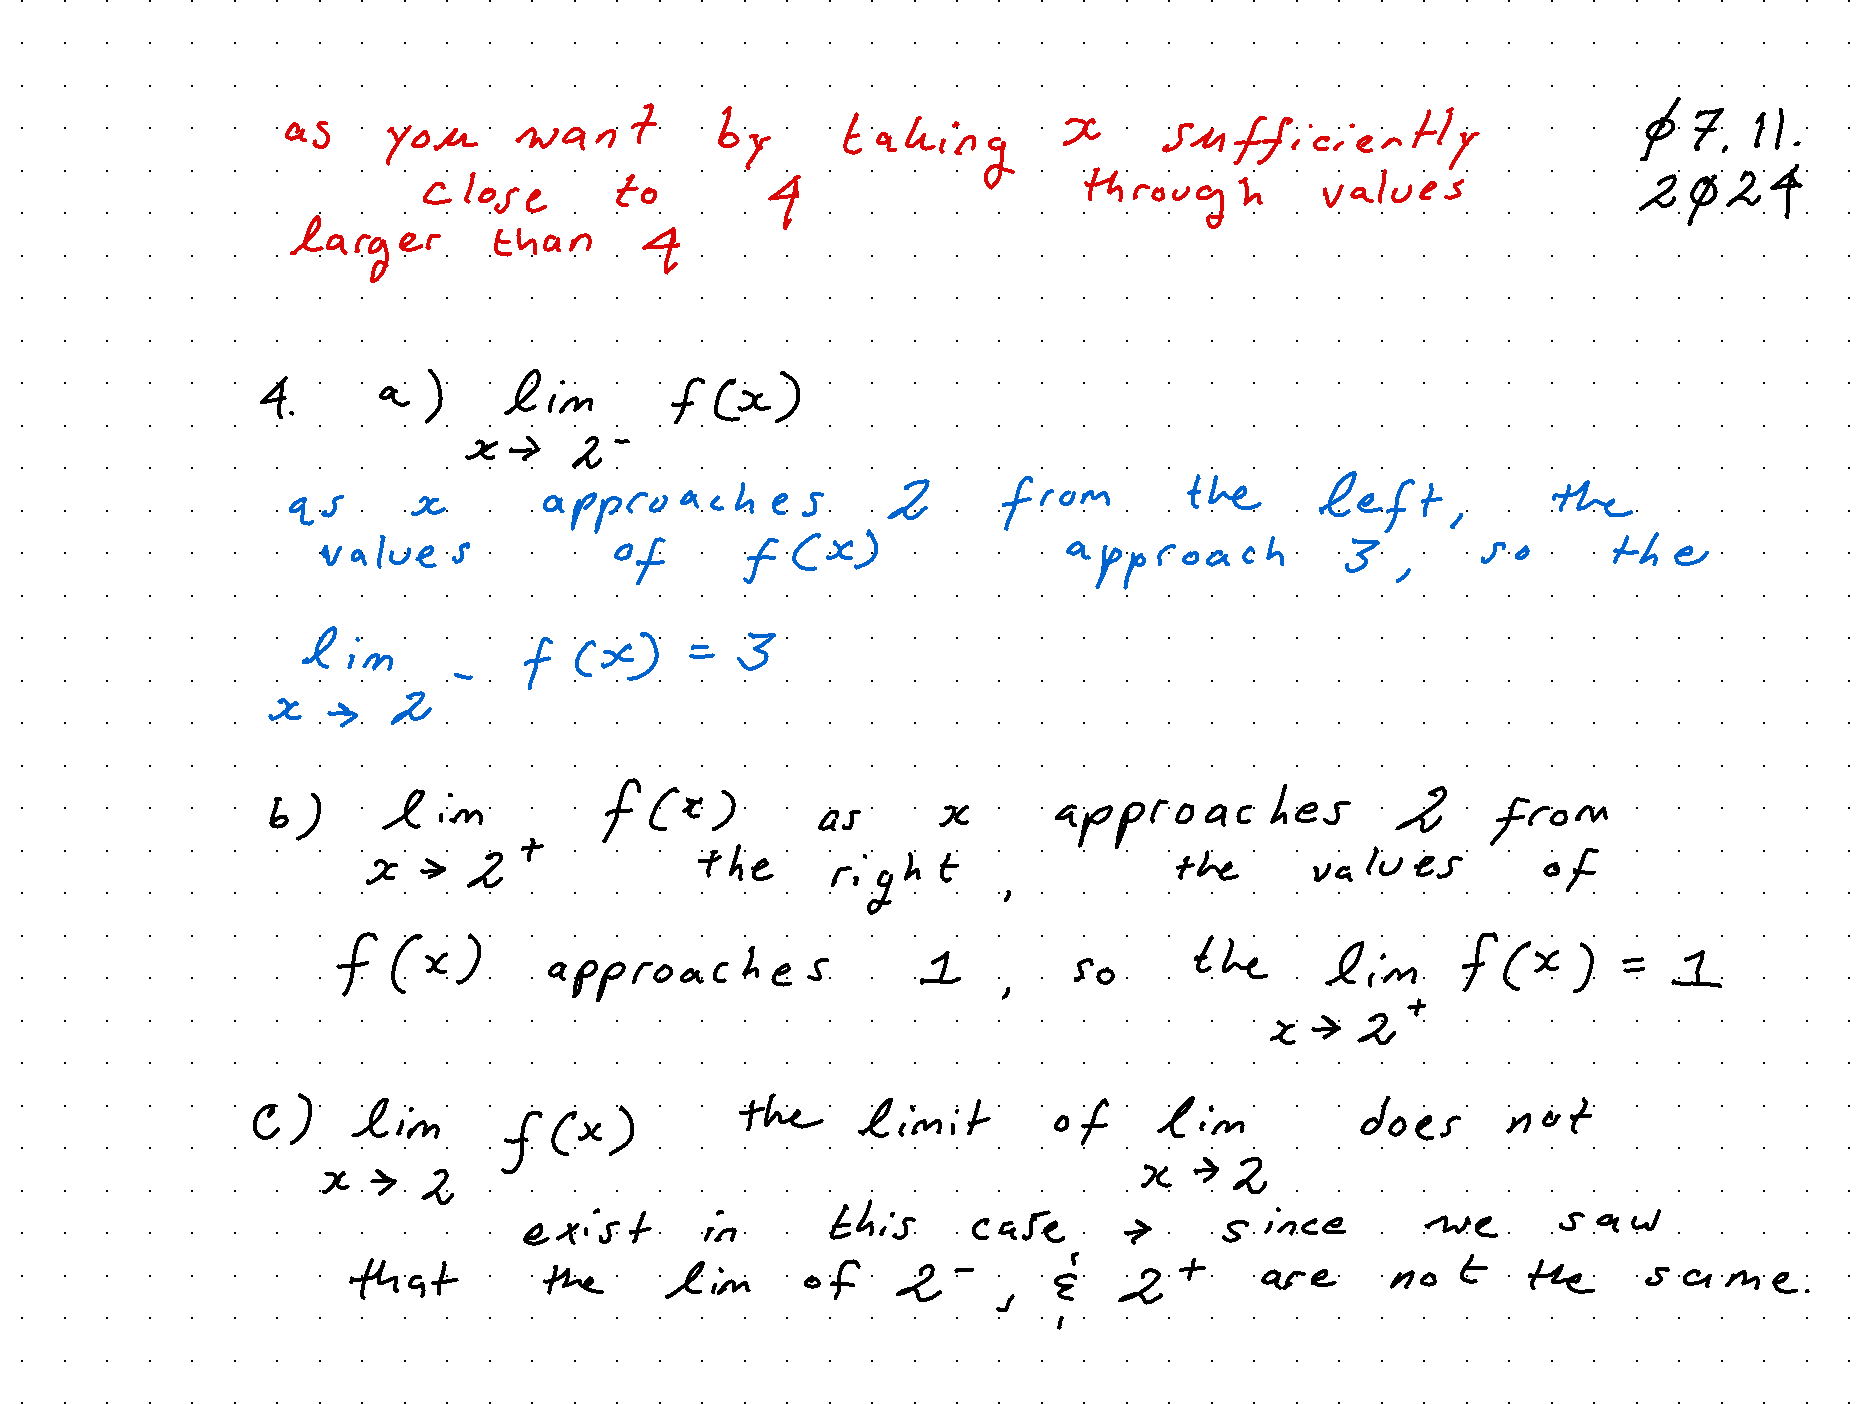 as you want by taking x sufficiently
close to 4 through values
larger than 4
ø7.11.
2ø24
4. a) lim f(x)
x → 2⁻
as x approaches 2 from the left, the
values of f(x) approach 3, so the
lim f(x) = 3
x → 2⁻
b) lim f(x) as x approaches 2 from
x → 2⁺ the right, the values of
f(x) approaches 1, so the lim f(x) = 1
x → 2⁺
c) lim f(x) the limit of lim does not
x → 2 x → 2
exist in this case, → since we saw
that the lim of 2⁻, & 2⁺ are not the same.